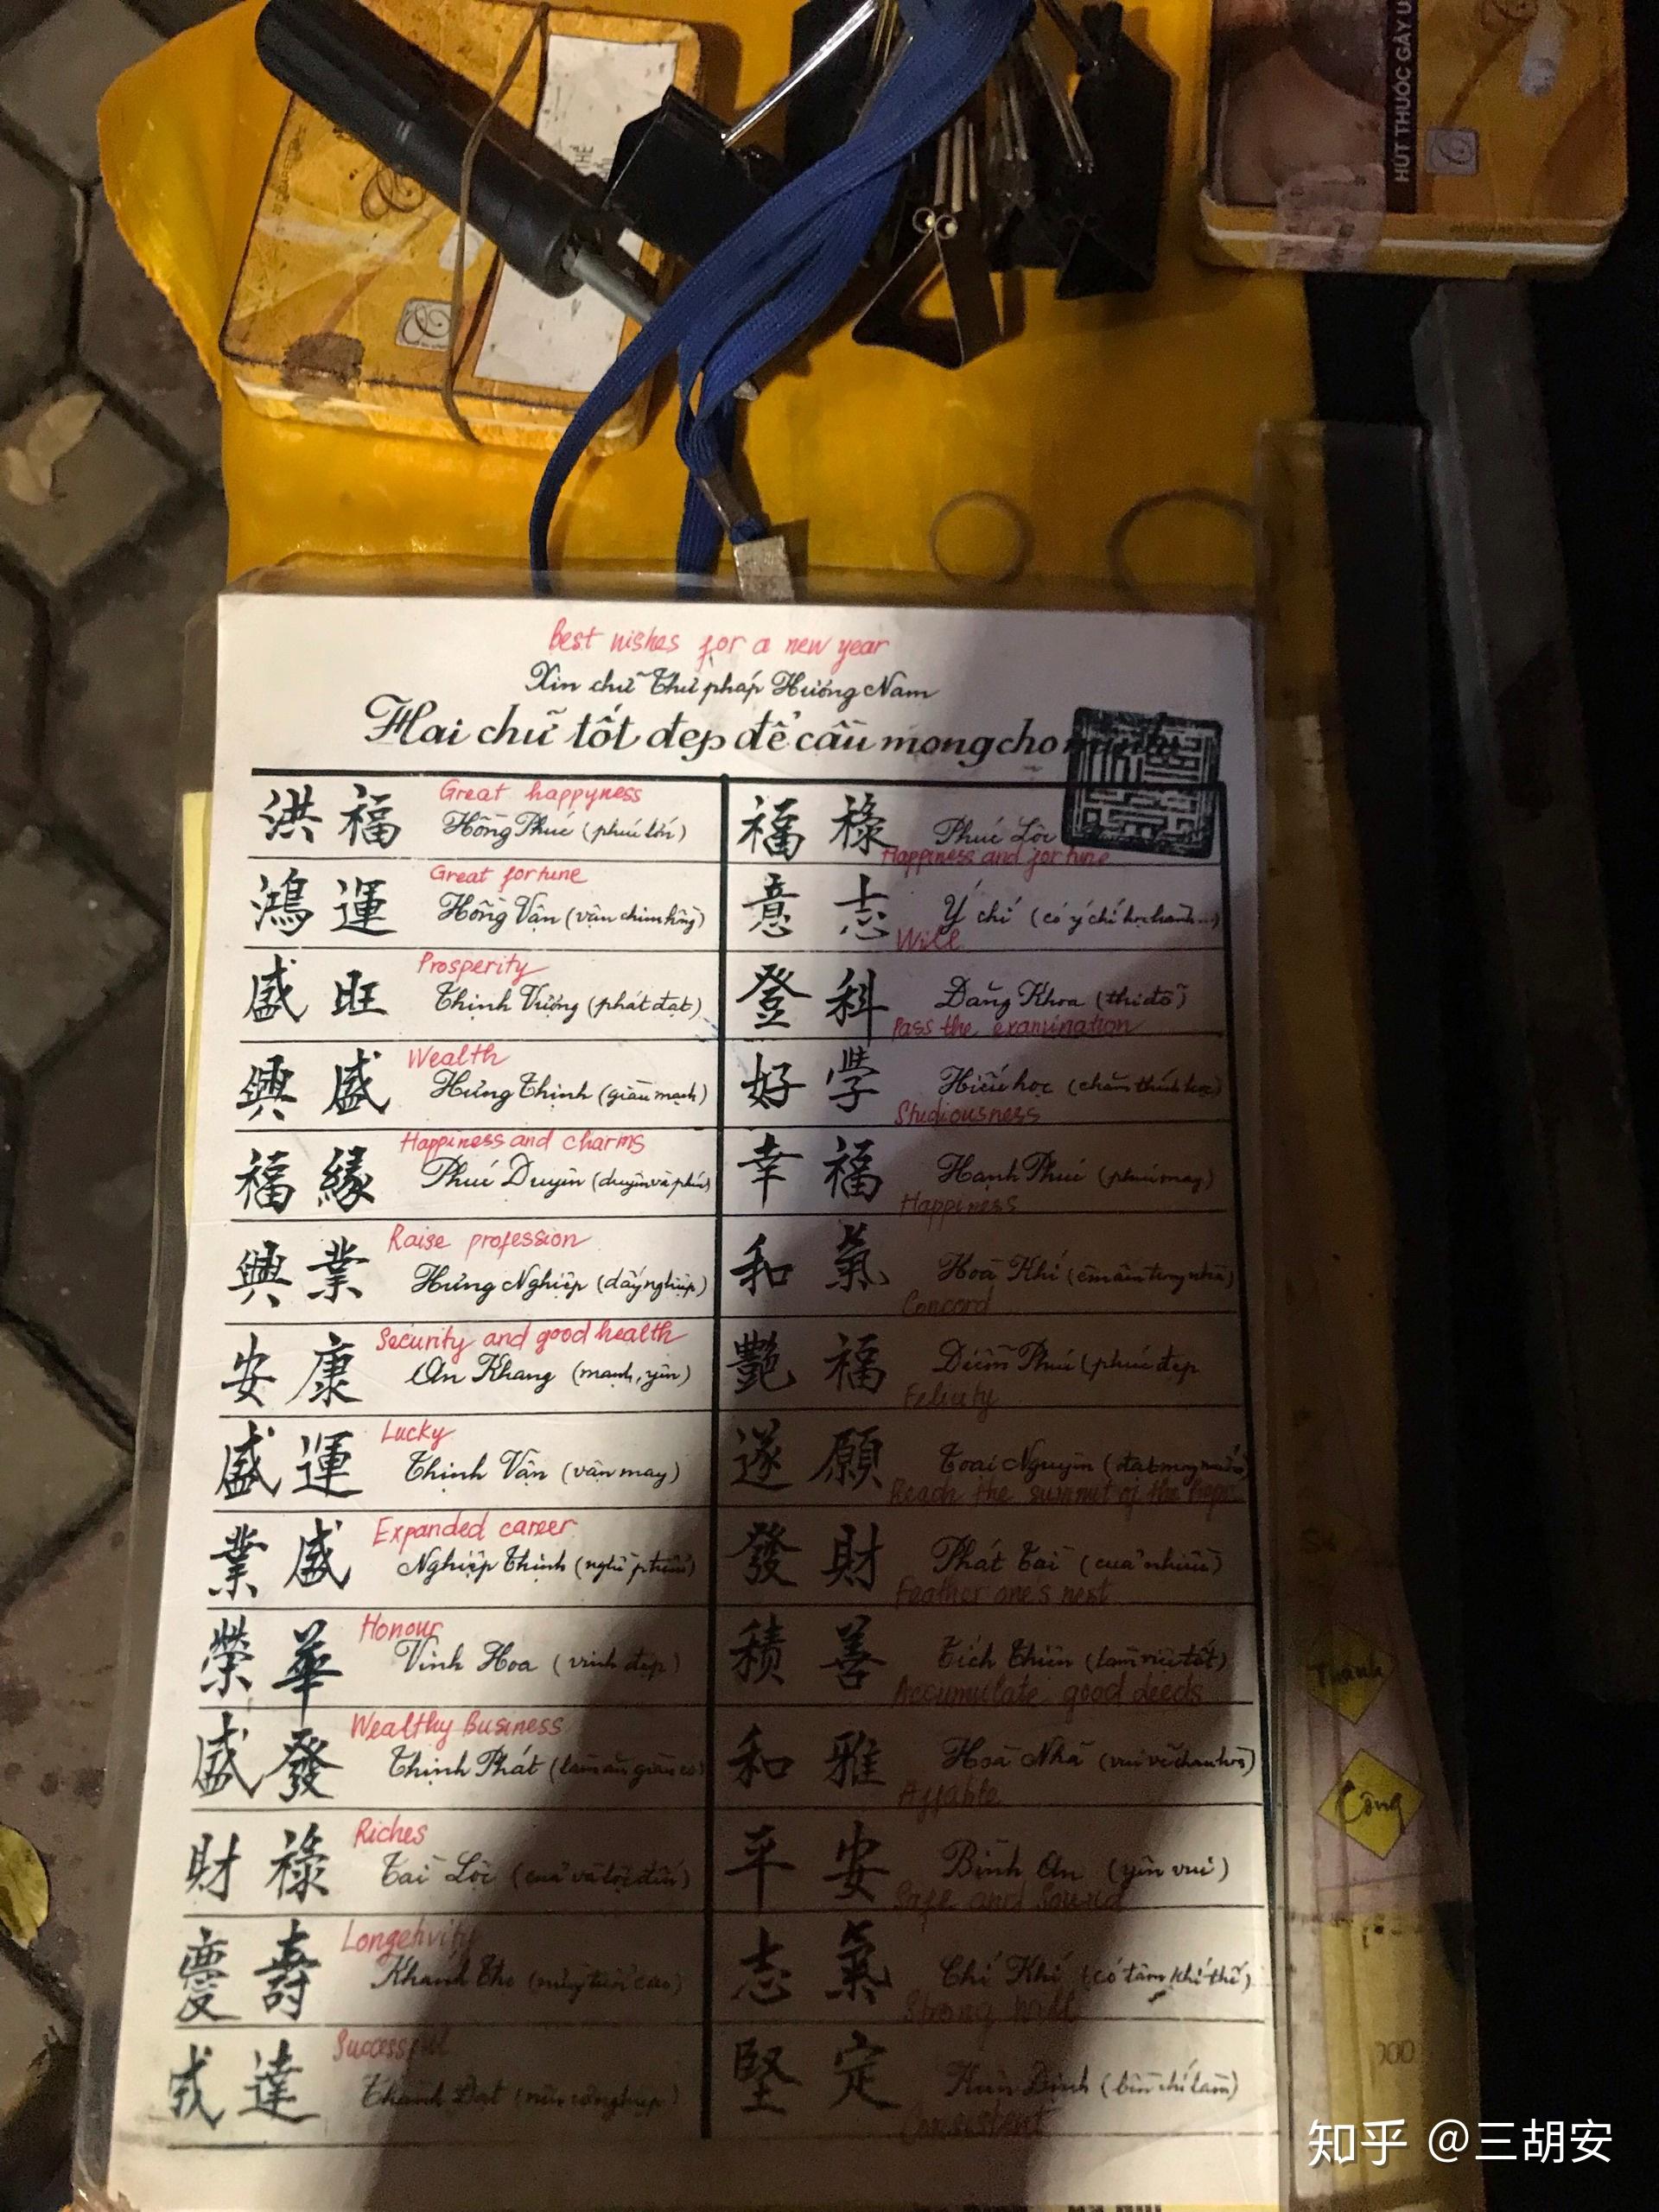 HÚT THUỐC GÂY U
Best wishes for a new year
Xin chữ Thư pháp Hương Nam
Hai chữ tốt đẹp để cầu mong cho
洪福 Great happyness
Hồng Phúc (phúc lớn)
鴻運 Great fortune
Hồng Vận (vận chim hồng)
盛旺 Prosperity
Thịnh Vượng (phát đạt)
興盛 Wealth
Hưng Thịnh (giàu mạnh)
福緣 Happiness and charms
Phúc Duyên (duyên và phúc)
興業 Raise profession
Hưng Nghiệp (dấy nghiệp)
安康 Security and good health
An Khang (mạnh, yên)
盛運 Lucky
Thịnh Vận (vận may)
業盛 Expanded career
Nghiệp Thịnh (nghề
榮華 Honour
Vinh Hoa (vinh đẹp)
盛發 Wealthy Business
Thịnh Phát (làm ăn giàu có)
財祿 Riches
Tài Lộc (của và lộc đến)
慶壽 Longehvity
Khánh Thọ (mừng tuổi cao)
成達 Successful
Thành Đạt (nên công nghiệp)
福祿 Phúc Lộc
Happiness and fortune
意志 Ý chí (có ý chí học hành...)
Will
登科 Đăng Khoa (thi đỗ)
Pass the examination
好學 Hiếu học (chăm thích học)
Studiousness
幸福 Hạnh Phúc (phúc may)
Happiness
和氣 Hoà Khí (êm ấm trong nhà)
Concord
艷福 Diễm Phúc (phúc đẹp
Felicity
遂願 Toại Nguyện
Reach the summit of the hope
發財 Phát Tài (của nhiều)
Feather one's nest
積善 Tích Thiện (làm việc tốt)
Accumulate good deeds
和雅 Hoà Nhã (vui vẻ chan hoà)
Affable
平安 Bình An (yên vui)
Safe and Sound
志氣 Chí Khí (có tâm khí thế)
Strong will
堅定 Kiên Định (bền chí làm)
Consistent
Thành
Công
000
知乎 @三胡安